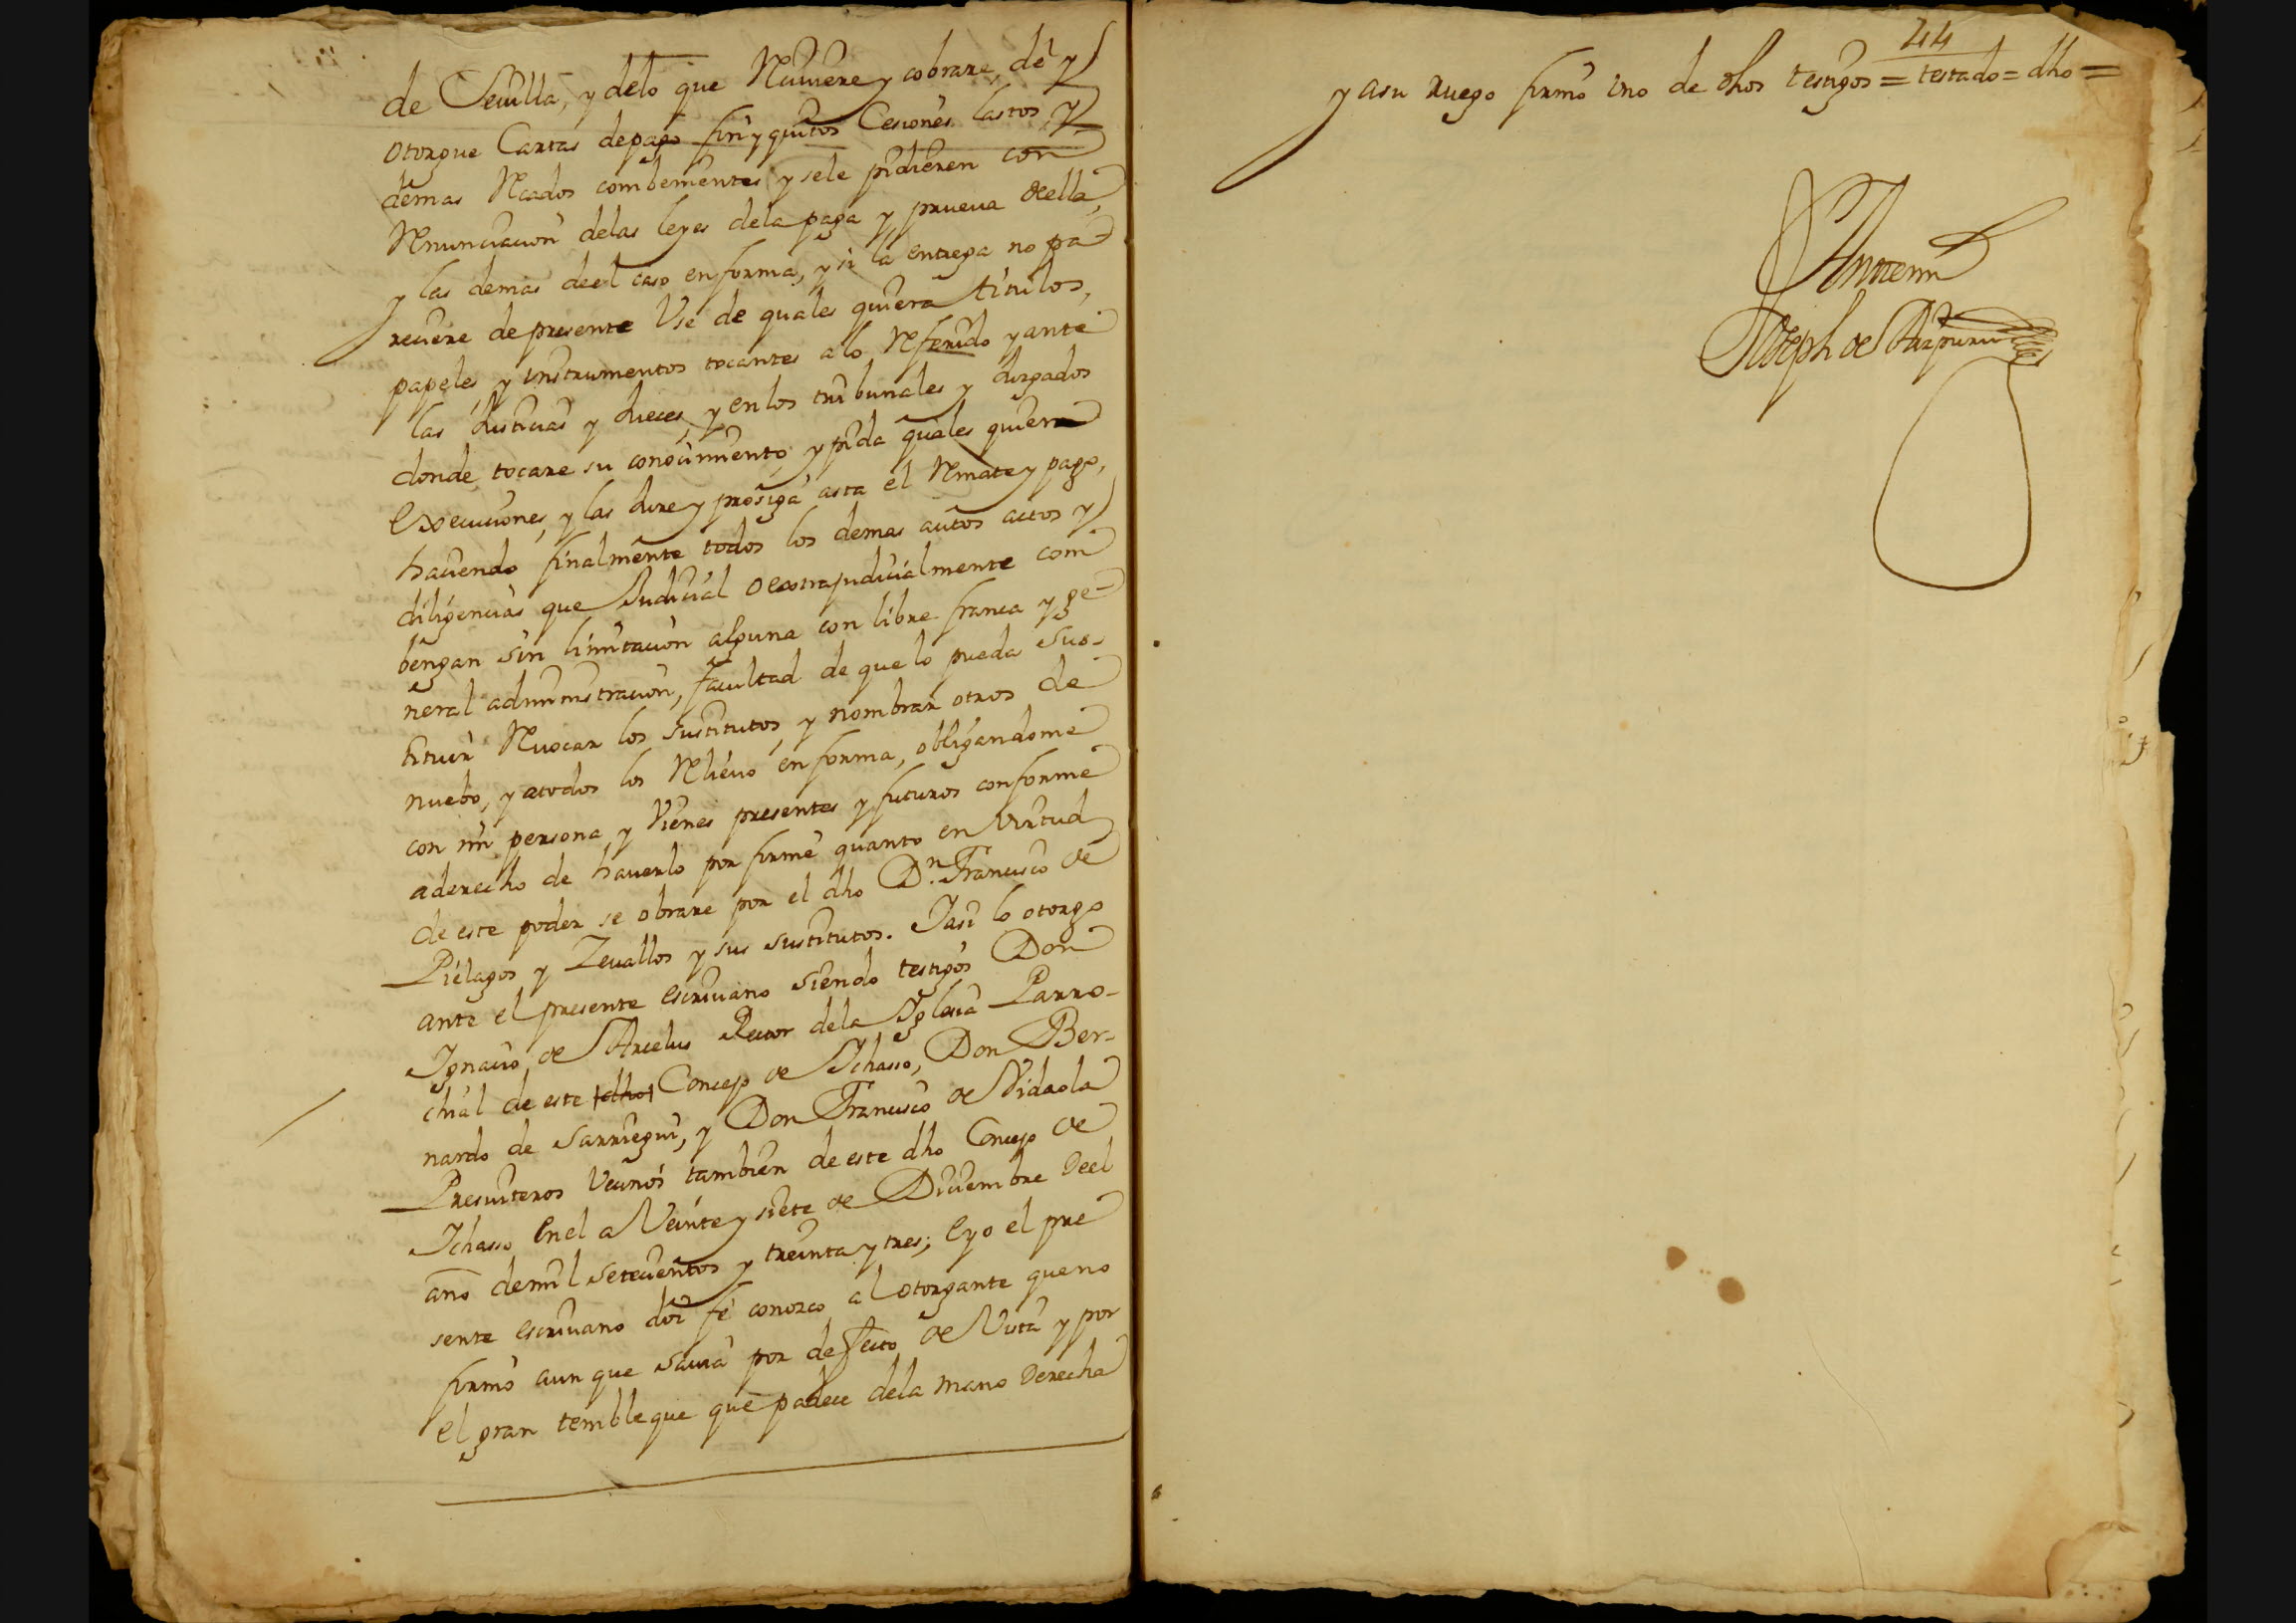 de Sevilla, y delo que Reciviere y cobrare, dé y
otorgue Cartas depago finyquitos Cesiones lastos, y
demas Rcados combenientes y sele pidieren con
Renunciacion delas leyes dela paga y prueva della,
y las demas deel caso enforma, y si la entrega no pa-
reciere depresente Use de quales quiera titulos,
papeles, y instrumentos tocantes alo Referido yante
las Justicias y Jueces, y enlos tribunales y Jusgados
donde tocare su conocimiento, y pida quales quiera
Execuciones, y las Jure y prosiga asta el Remate y pago,
haciendo finalmente todos los demas autos actos y
diligencias que Judicial oextrajudicialmente com
bengan sin limitacion alguna con libre franca y ge-
neral administracion, facultad de que lo pueda Sus-
tituir Revocar los sustitutos, y nombrar otros de
nuebo, y atodos los Relievo enforma, obligandome
con mi persona y Vienes presentes y futuros conforme
aderecho de haverlo por firme quanto en Virtud
de este poder se obrare por el dho Dn. Francisco de
Piélagos y Zevallos y sus sustitutos. Iasi lo otorgo
ante el presente escrivano siendo testigos Don
Ignacio, de Arcelus Rector dela Iglesia Parro-
chial de este dho Concejo de Ichasso, Don Ber-
nardo de Sarriegui, y Don Francisco de Vidaola
Presviteros Vecinos tambien de este dho Concejo de
Ichasso, Enel a Veinte y siete de Diciembre Deel
año demil setecientos y treinta y tres; Eyo el pre
sente escrivano doi fé conozco al otorgante queno
firmó aun que savia por defecto de Vista y por
el gran tembleque que padece dela mano Derecha
44
y asu ruego firmó uno de dhos testigos = testado = dho =
Antemi
Joseph de Aizpuru